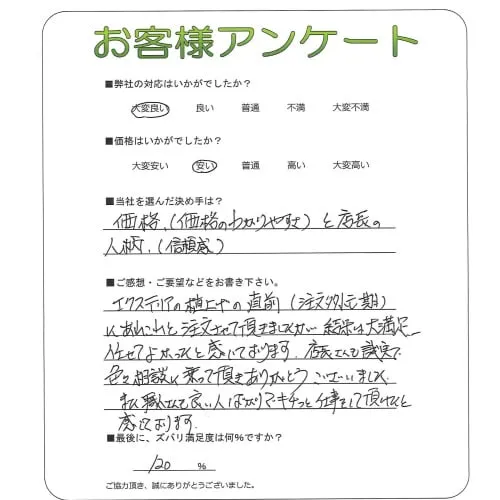 お客様アンケート
■弊社の対応はいかがでしたか？
大変良い 良い 普通 不満 大変不満
■価格はいかがでしたか？
大変安い 安い 普通 高い 大変高い
■当社を選んだ決め手は？
価格、(価格のわかりやすさ)と店長の
人柄、(信頼感)
■ご感想・ご要望などをお書き下さい。
エクステリアの 直前(注文
注文 頂きましたが 結果は大満足
任せてよかったと感じております。店長さんも誠実で
色々相談に乗って頂きありがとうございました。
また職人さんも良い人ばかりでキチッと仕事をして頂けたと
感じております。
■最後に、ズバリ満足度は何%ですか？
120 %
ご協力頂き、誠にありがとうございました。